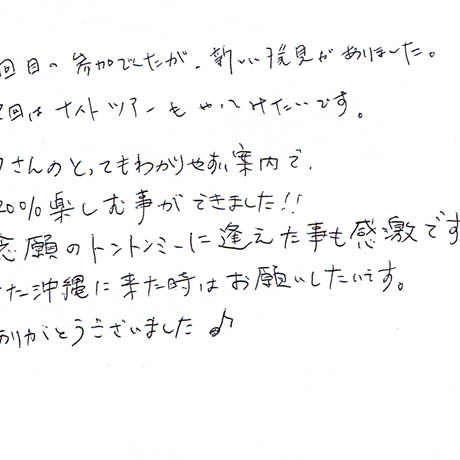 回目の参加でしたが、新しい発見がありました。
回はナイトツアーもやってみたいです。
さんのとってもわかりやすい案内で、
20%楽しむ事ができました!!
念願のトントンミーに逢えた事も感激です
た沖縄に来た時はお願いしたいです。
ありがとうございました♪